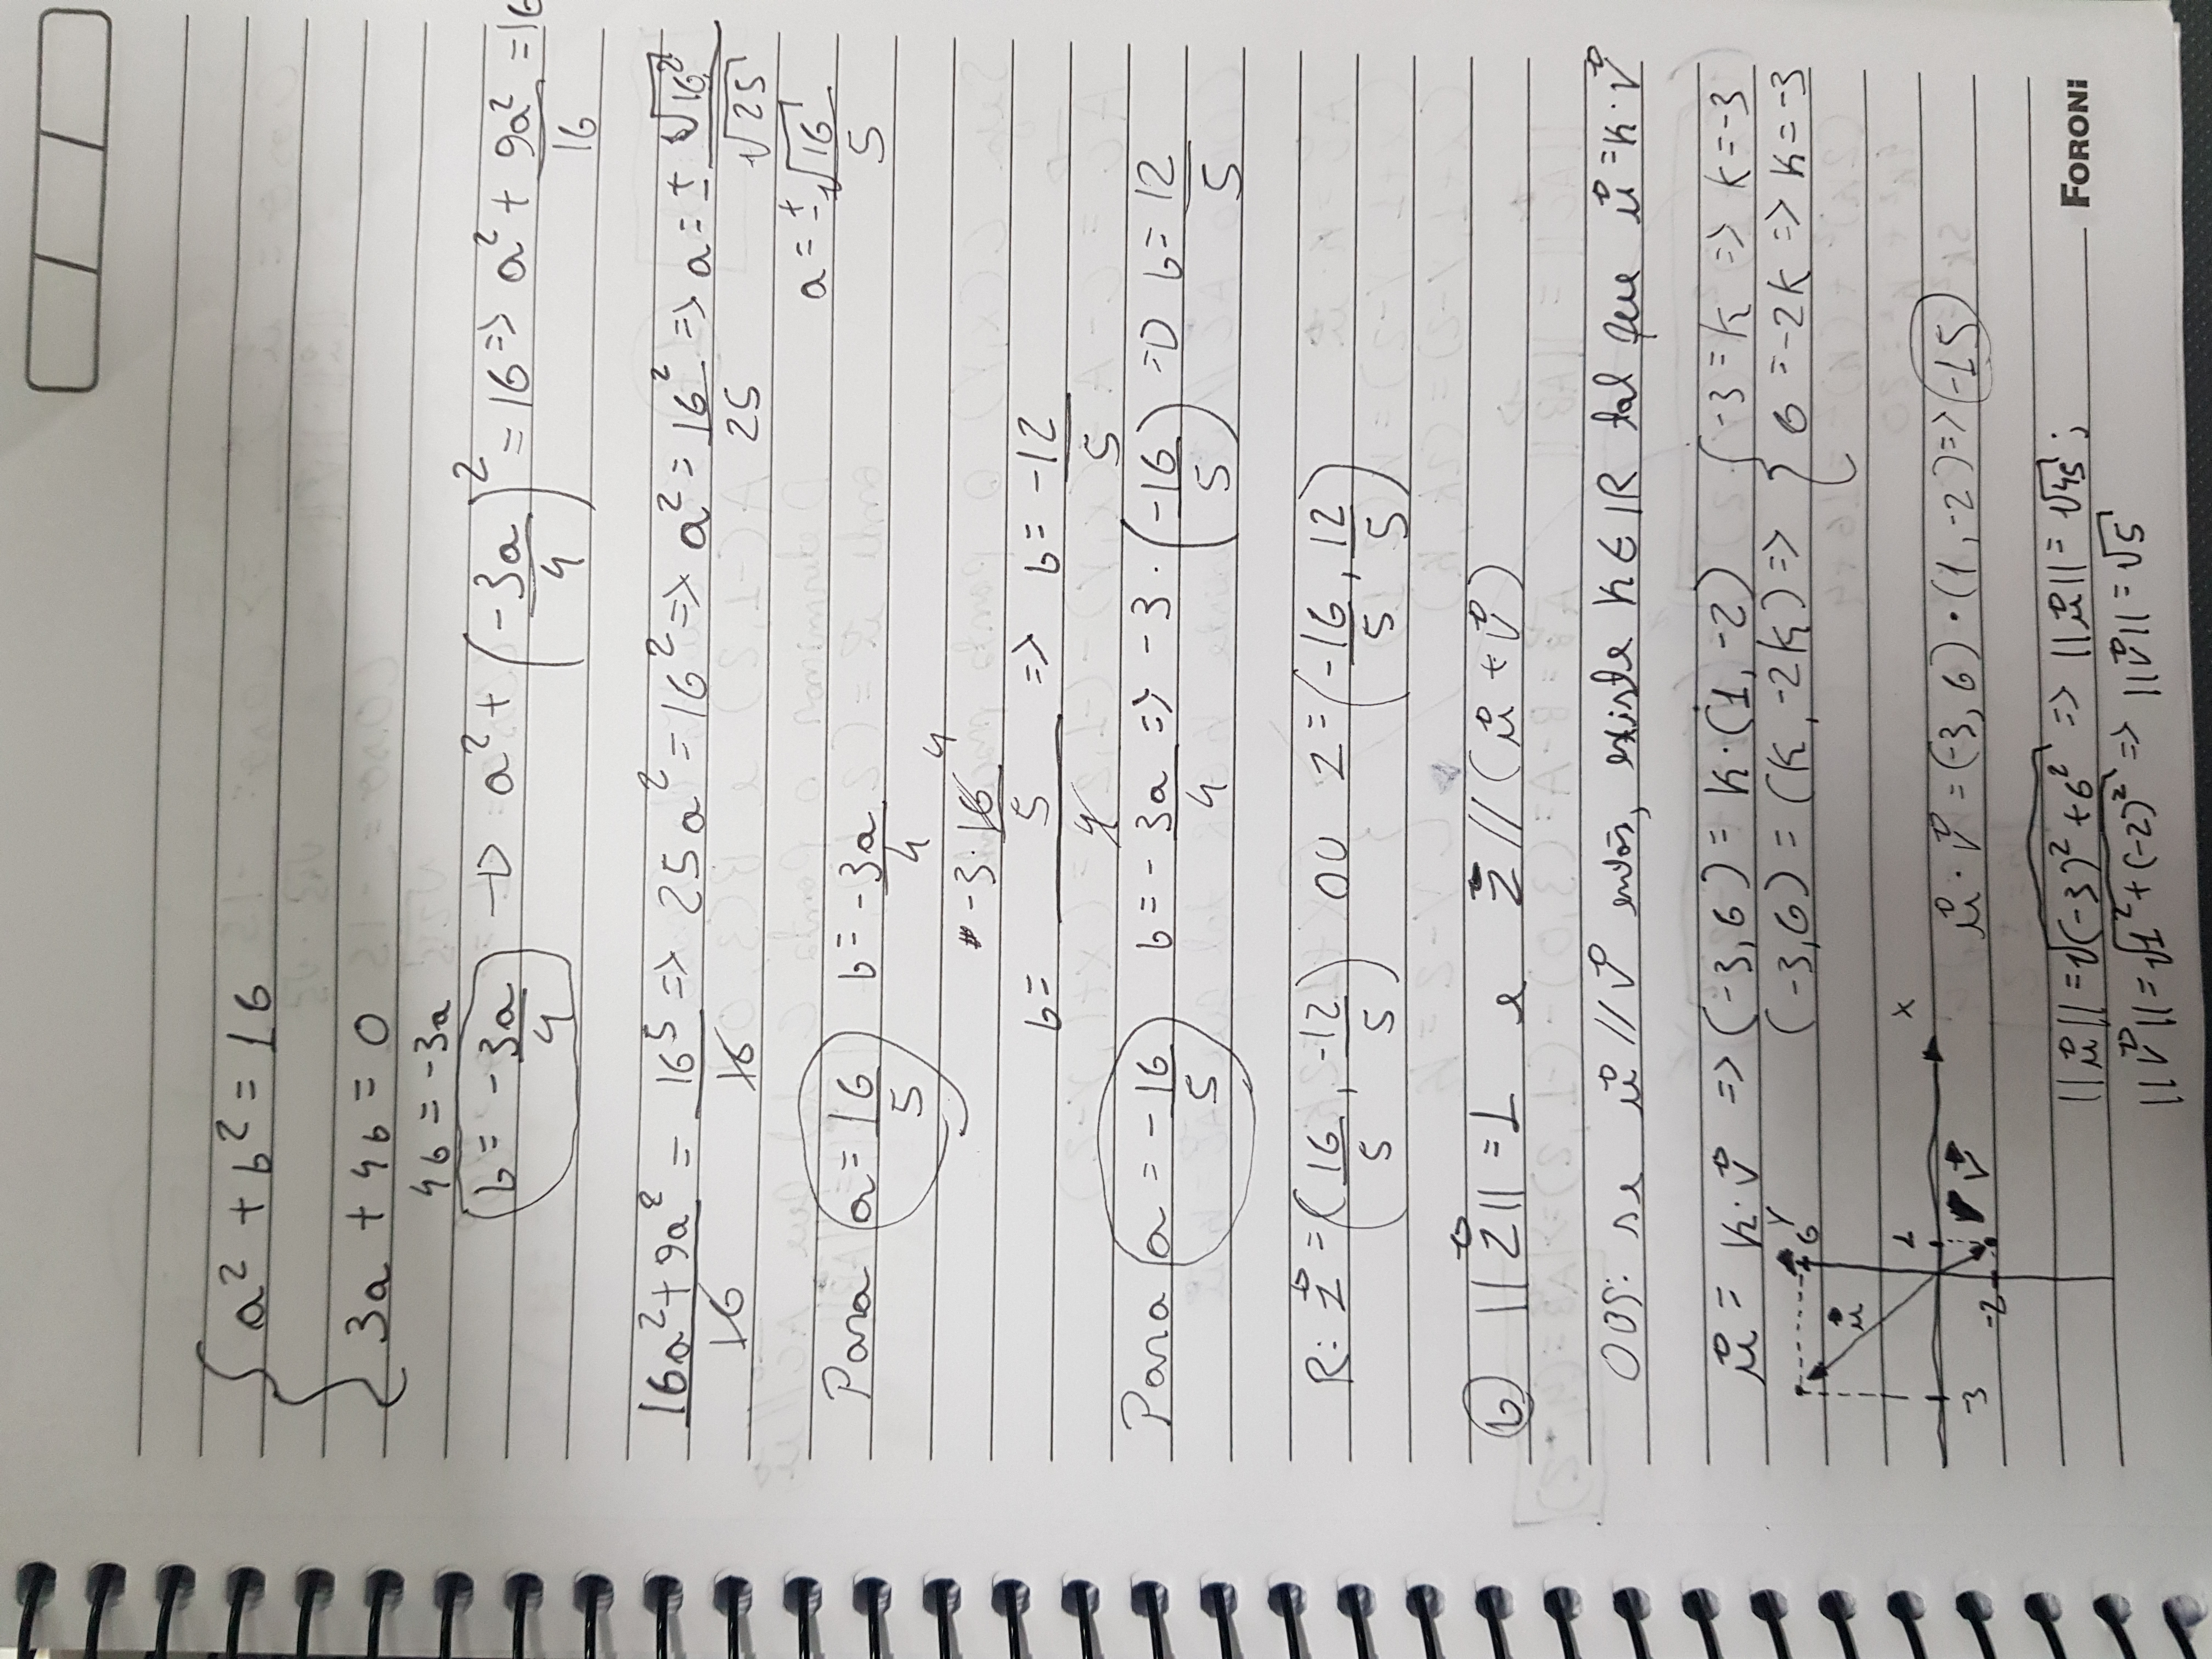 { a² + b² = 16
3a + 4b = 0
4b = -3a
b = -3a/4 → a² + (-3a/4)² = 16 => a² + 9a²/16 = 16
(16a² + 9a²)/16 = 16⁵/16 => 25a² = 16² => a² = 16²/25 => a = ± √16²/√25
a = ± √16/5
Para a = 16/5 b = -3a/4
b = (-3 · 16/5)/4 4 => b = -12/5
Para a = -16/5 b = -3a/4 => -3 · (-16/5) => b = 12/5
R: z⃗ = (16/5, -12/5) OU z = (-16/5, 12/5)
b) ||z⃗|| = 1 e z⃗ // (u⃗ + v⃗)
OBS: se u⃗ // v⃗ então, existe K ∈ IR tal que u⃗ = K · v⃗
u⃗ = K · v⃗ => (-3, 6) = K · (1, -2) { -3 = K => K = -3
(-3, 6) = (K, -2K) => { 6 = -2K => K = -3
Y
6
u⃗
1 X
-3
-2 v⃗
u⃗ · v⃗ = (-3, 6) · (1, -2) => -15
||u⃗|| = √(-3)² + 6² => ||u⃗|| = √45 ;
FORONI
||v⃗|| = √1² + (-2)² => ||v⃗|| = √5